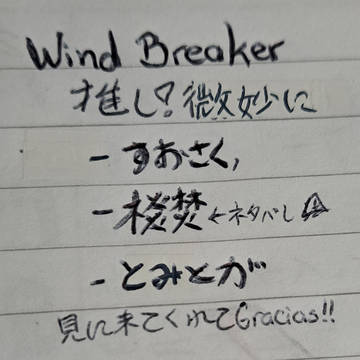 Wind Breaker
推し?微妙に
- すおさく,
- 桜梵←ネタバレ
- とみとが
見に来てくれてGracias!!